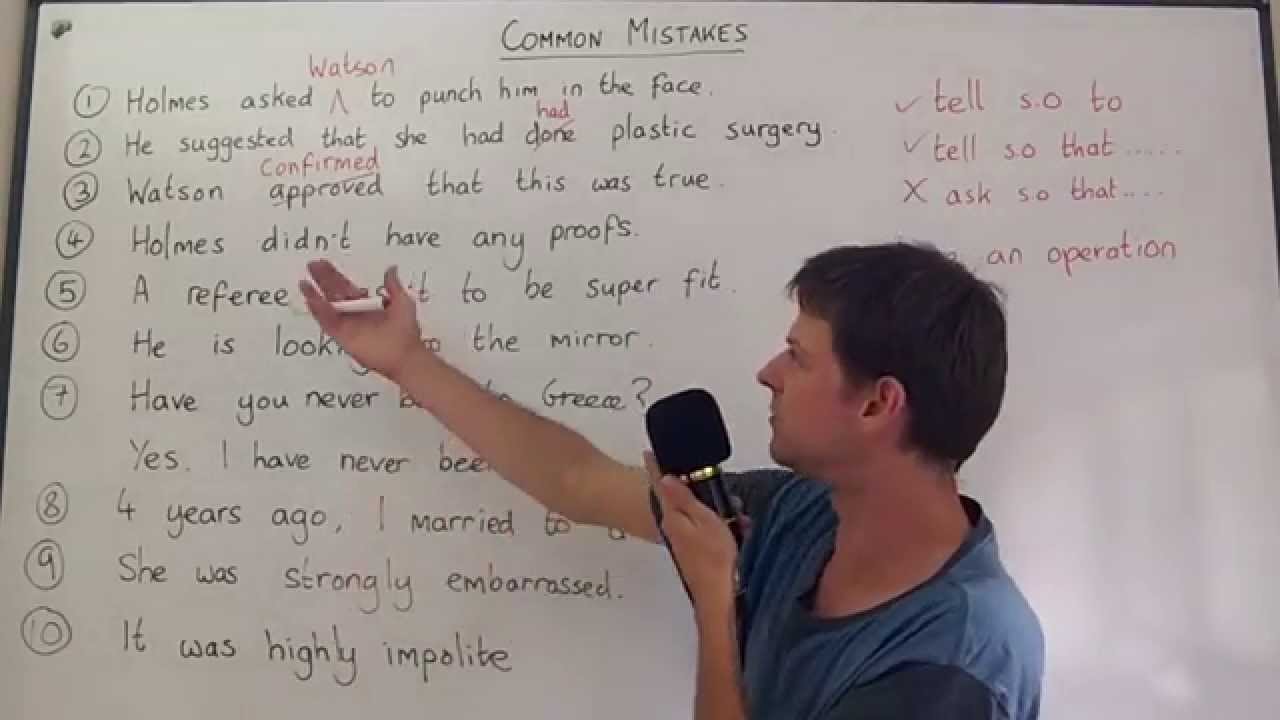 COMMON MISTAKES
Watson
① Holmes asked ⋀ to punch him in the face.
had
② He suggested that she had done plastic surgery.
Confirmed
③ Watson approved that this was true.
④ Holmes didn't have any proofs.
⑤ A referee to be super fit.
⑥ He is the mirror.
⑦ Have you never Greece?
Yes. I have never
⑧ 4 years ago, I married to
⑨ She was strongly embarrassed.
⑩ It was highly impolite
✓ tell s.o to
✓ tell s.o that.....
X ask s.o that....
an operation